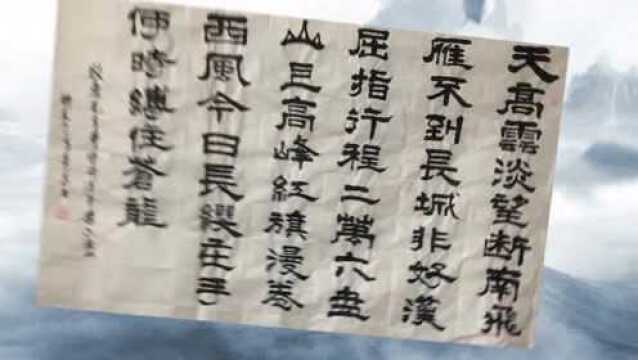 天高雲淡望断南飛
雁不到長城非好漢
屈指行程二萬六盘
山上高峰紅旗漫卷
西風今日長纓在手
何時縛住蒼龍